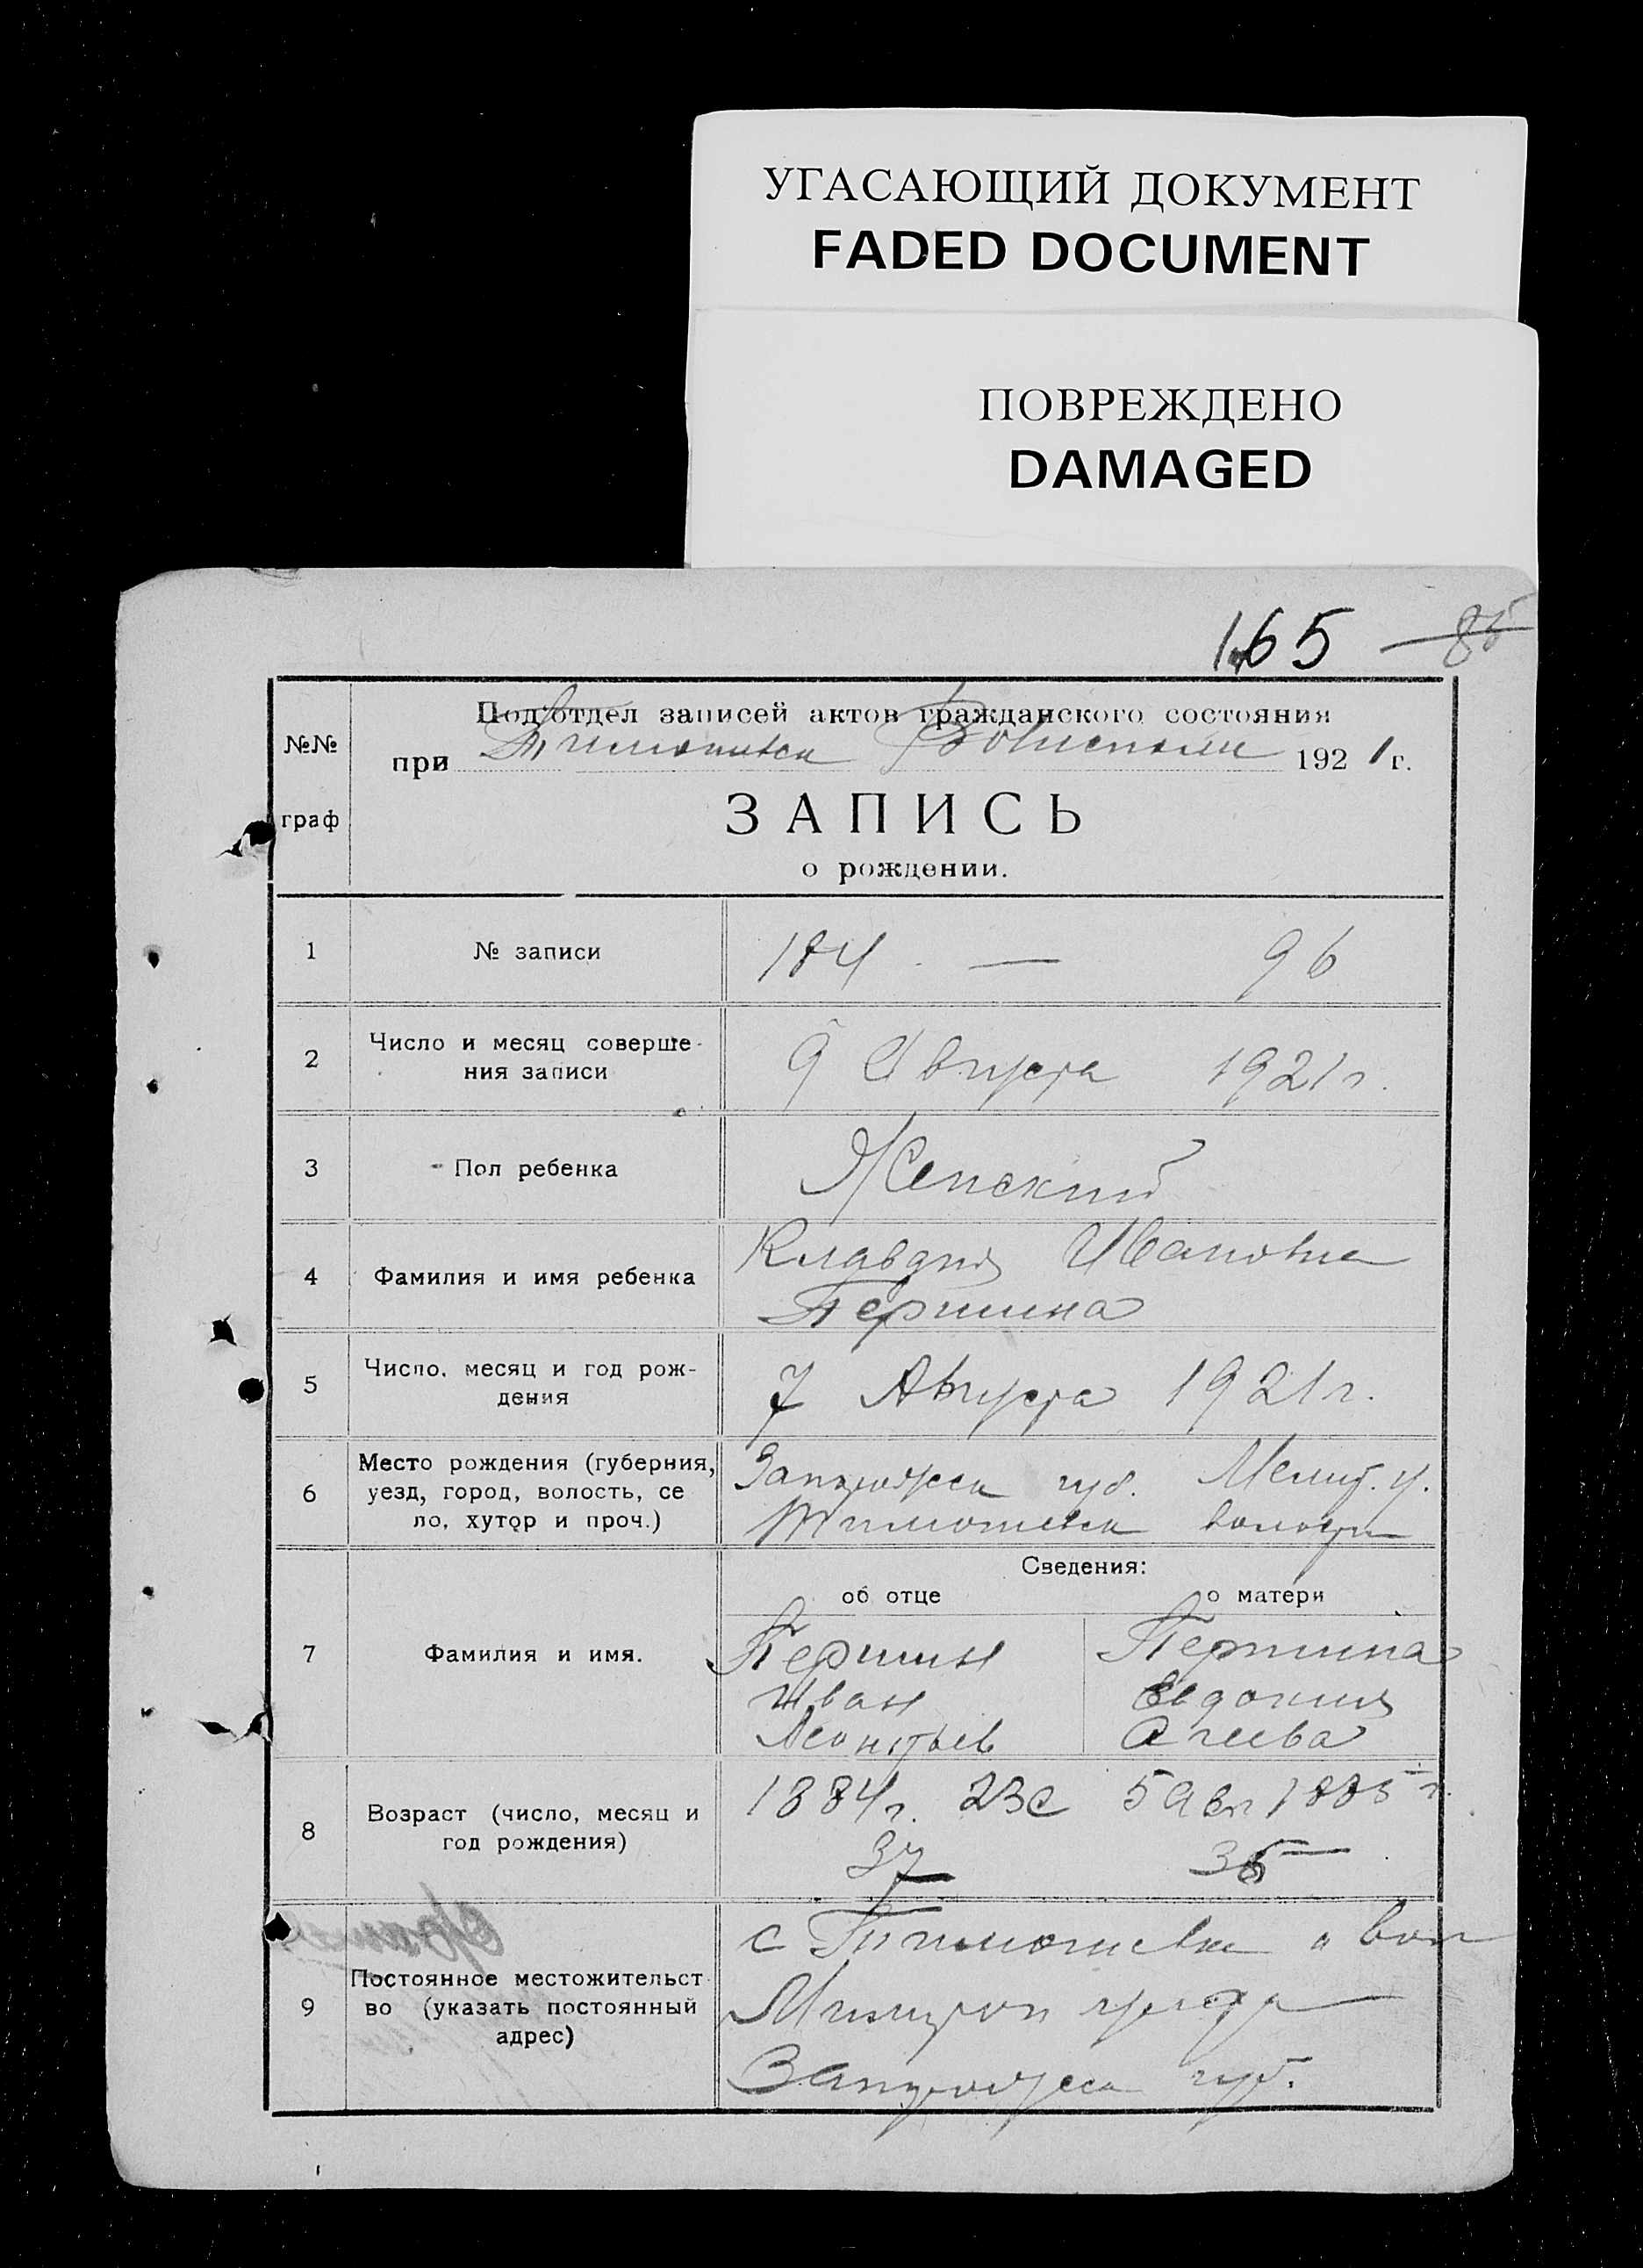 УГАСАЮЩИЙ ДОКУМЕНТ
FADED DOCUMENT
ПОВРЕЖДЕНО
DAMAGED
165 85
№№
граф
Под'отдел записей актов гражданского состояния
при Тимошевск 1921 г.
ЗАПИСЬ
о рождении.
1 № записи 184 — 96
2 Число и месяц соверше-
ния записи
9 Августа 1921 г.
3 Пол ребенка Женский
4 Фамилия и имя ребенка
Клавдия Ивановна
Першина
5 Число, месяц и год рож-
дения
7 Августа 1921 г.
6 Место рождения (губерния,
уезд, город, волость, се
ло, хутор и проч.)
Запорожск губ. Мелит. у.
Тимошевск волости
Сведения:
об отце о матери
7 Фамилия и имя.
Першин
Иван
Леонтьев
Першина
Евдокия
Агеева
8 Возраст (число, месяц и
год рождения)
1884 г. 5 Авг 1885 г.
37 35
9 Постоянное местожительст
во (указать постоянный
адрес)
с Тимошевка и вол
уезда
Запорожск губ.